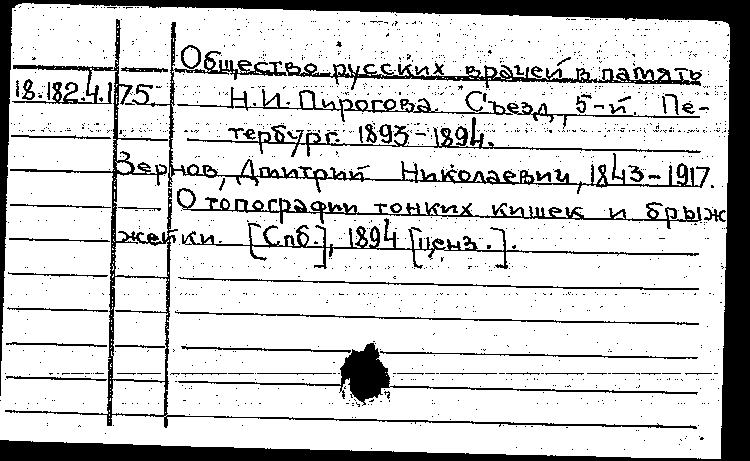 Общество русских врачей в память
18.182.4.175. Н.И. Пирогова. Съезд, 5-й. Пе-
тербург. 1893-1894.
Зернов, Дмитрий Николаевич, 1843-1917.
О топографии тонких кишек и брыж
жейки. [Спб.], 1894 [ценз.].